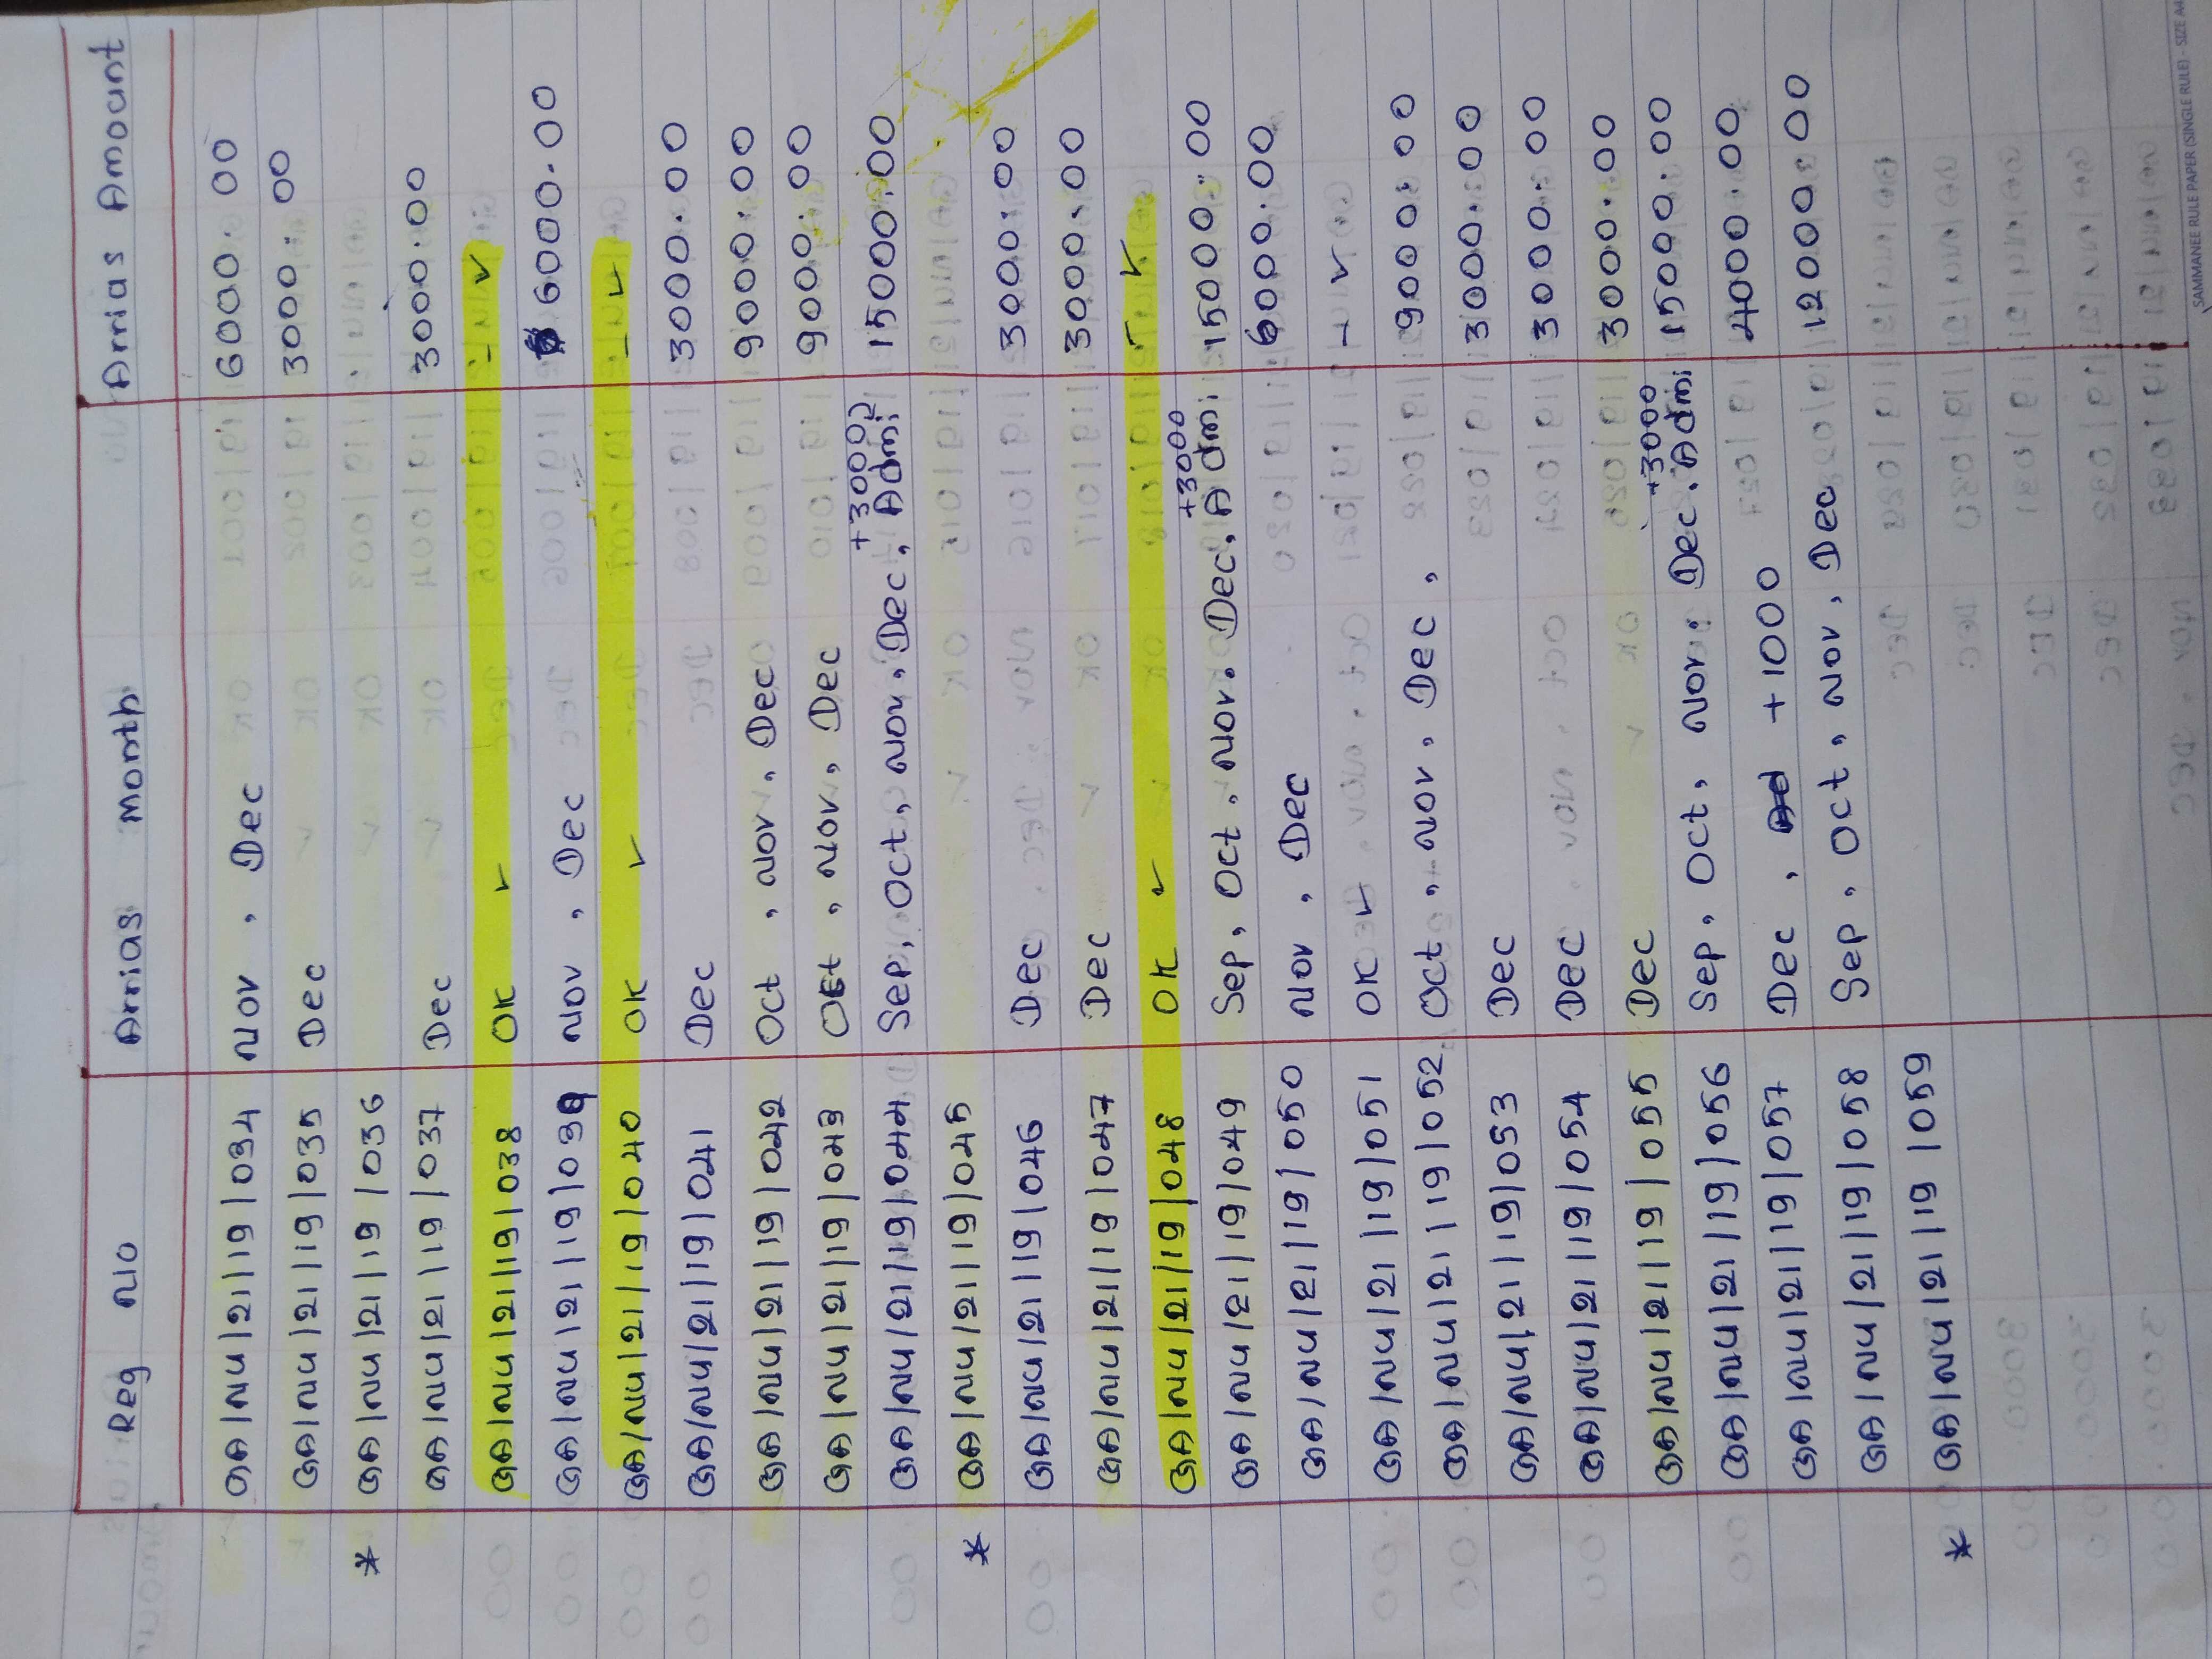 Reg No Arrias Month Arrias Amount
GA/NU/21/19/034 Nov, Dec 6000.00
GA/NU/21/19/035 Dec 3000.00
* GA/NU/21/19/036
GA/NU/21/19/037 Dec 3000.00
GA/NU/21/19/038 OK ✓ - ✓
GA/NU/21/19/039 Nov, Dec 6000.00
GA/NU/21/19/040 OK ✓ - ✓
GA/NU/21/19/041 Dec 3000.00
GA/NU/21/19/042 Oct, Nov, Dec 9000.00
GA/NU/21/19/043 Oct, Nov, Dec 9000.00
+3000
GA/NU/21/19/044 Sep, Oct, Nov, Dec, Admi 15000.00
* GA/NU/21/19/045
GA/NU/21/19/046 Dec 3000.00
GA/NU/21/19/047 Dec 3000.00
GA/NU/21/19/048 OK ✓ - ✓
+3000
GA/NU/21/19/049 Sep, Oct, Nov, Dec, Admi 15000.00
GA/NU/21/19/050 Nov, Dec 6000.00
GA/NU/21/19/051 OK ✓ - ✓
GA/NU/21/19/052 Oct, Nov, Dec, 9000.00
GA/NU/21/19/053 Dec 3000.00
GA/NU/21/19/054 Dec 3000.00
GA/NU/21/19/055 Dec 3000.00
+3000
GA/NU/21/19/056 Sep, Oct, Nov. Dec. Admi 15000.00
GA/NU/21/19/057 Dec, +1000 4000.00
GA/NU/21/19/058 Sep, Oct, Nov, Dec 12000.00
* GA/NU/21/19/059
SAMMANEE RULE PAPER (SINGLE RULE) - SIZE A4